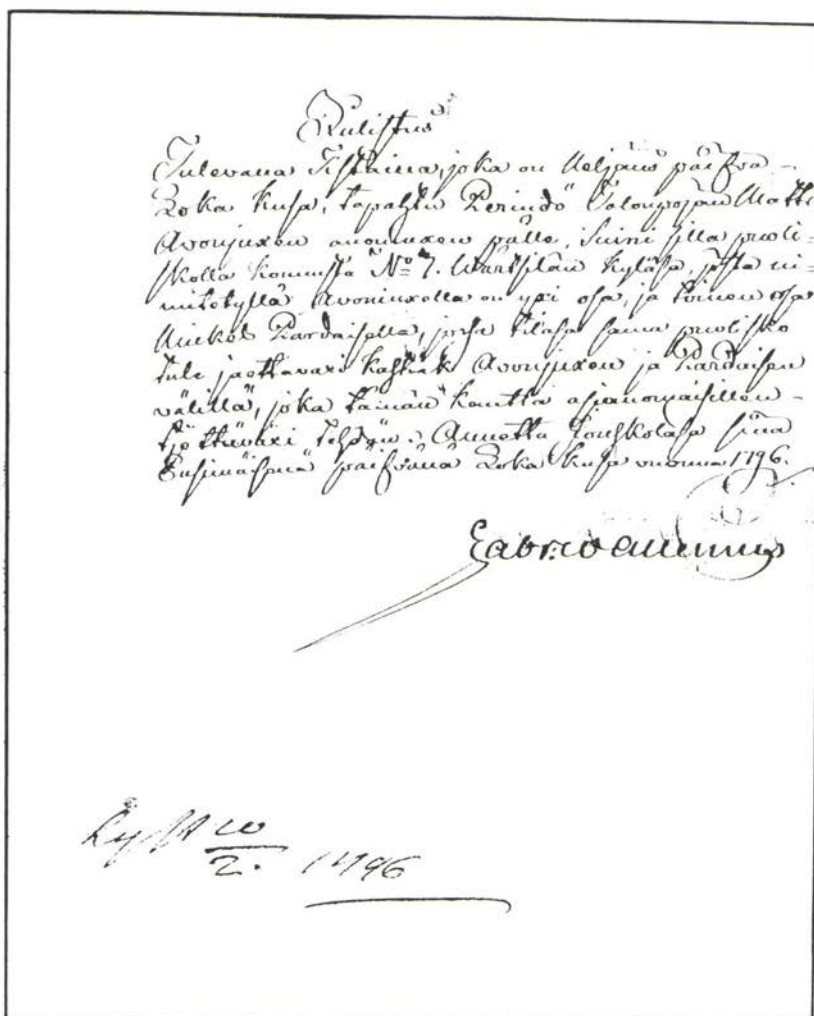 Kulistus
Tulevana Tistaina, joka on Neljäs päifvä
Loka kusa, tapahtu Perindö Talonpojan Matti
Avonjuxen anomuxen pälle, Syni sillä puoli-
skolla kommista No 7. Wärtsilän kyläsä, josta ni-
mitetyllä Avoniuxella on yxi osa, ja toinen osa
Pardaisella, josa tilasa sama puolisko
tule jaottavaxi kahtia Avonjuxen ja Pardaisen
välillä, joka tämän kautta asjanomaisillen
tjettäväxi tehdän. Annettu sinä
Ensimäisnä päifvänä Loka kusa vuonna 1796.
Lyst 20
2. 1796